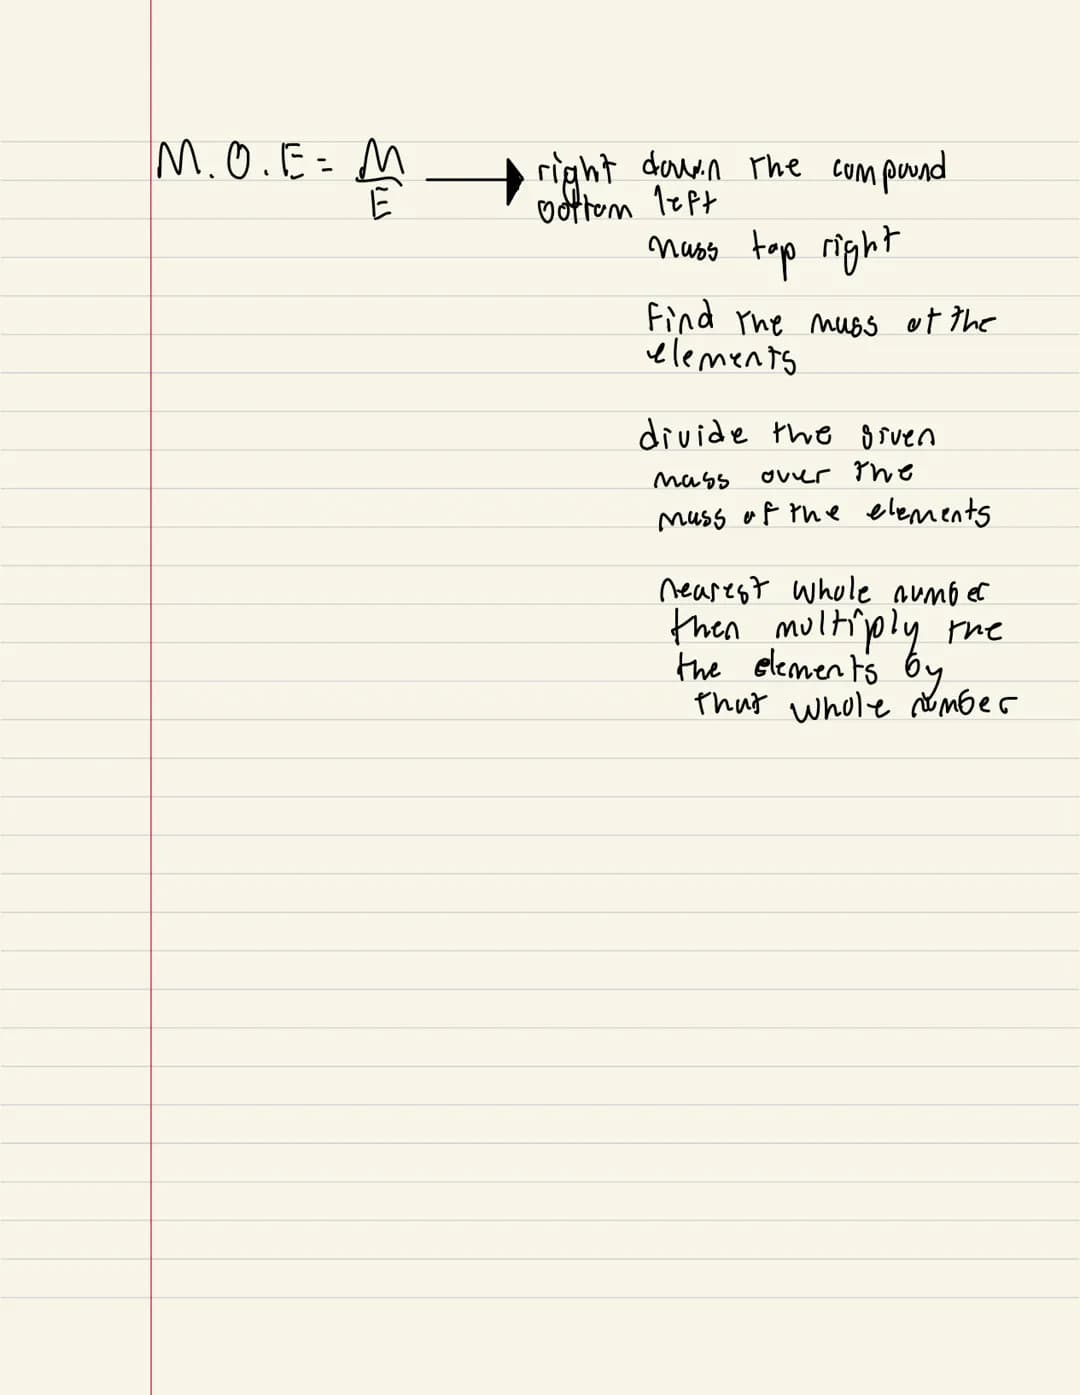 M.O.E = M/E → right down the compound
bottom left
mass top right
Find the mass of the
elements
divide the given
mass over the
mass of the elements
nearest whole number
then multiply the
the elements by
that whole number